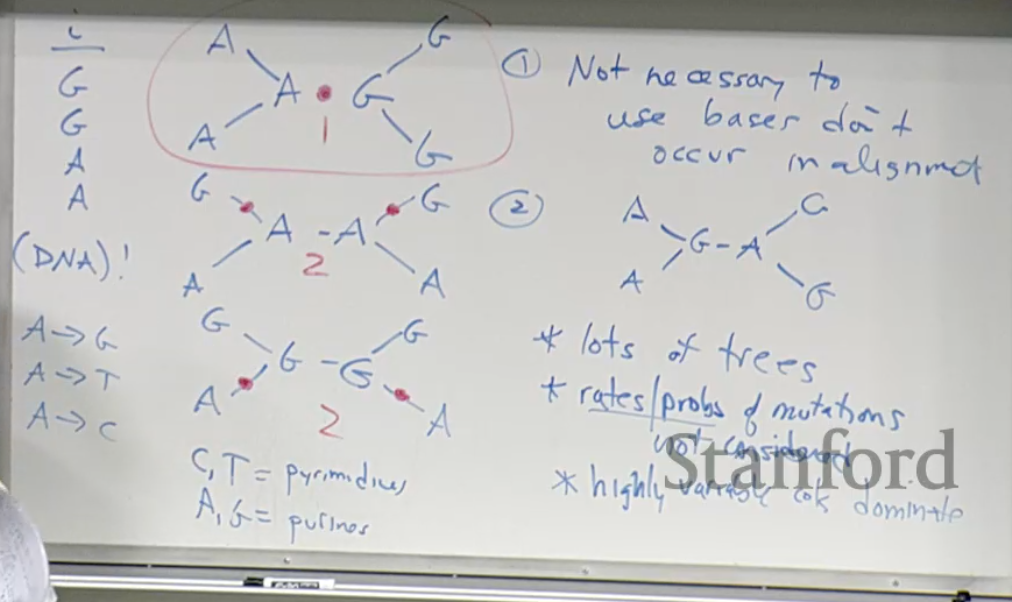 i
G
G
A
A
(DNA)!
A→G
A→T
A→C
A G
A • G
1
A G
G G
A - A
2
A A
G G
G - G
A A
2
C, T = pyrimidines
A, G = purines
① Not necessary to
use bases don't
occur in alignment
②
A G
G - A
A G
* lots of trees
* rates/probs of mutations
not considered
* highly variable cols dominate
Stanford